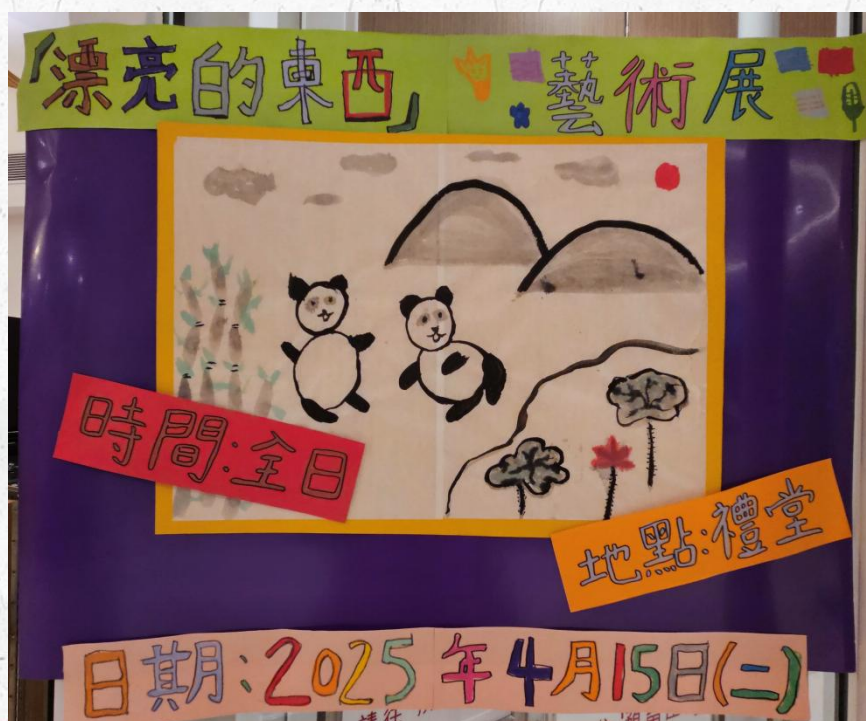 「漂亮的東西」 藝術展
時間:全日
地點:禮堂
日期:2025年4月15日(二)